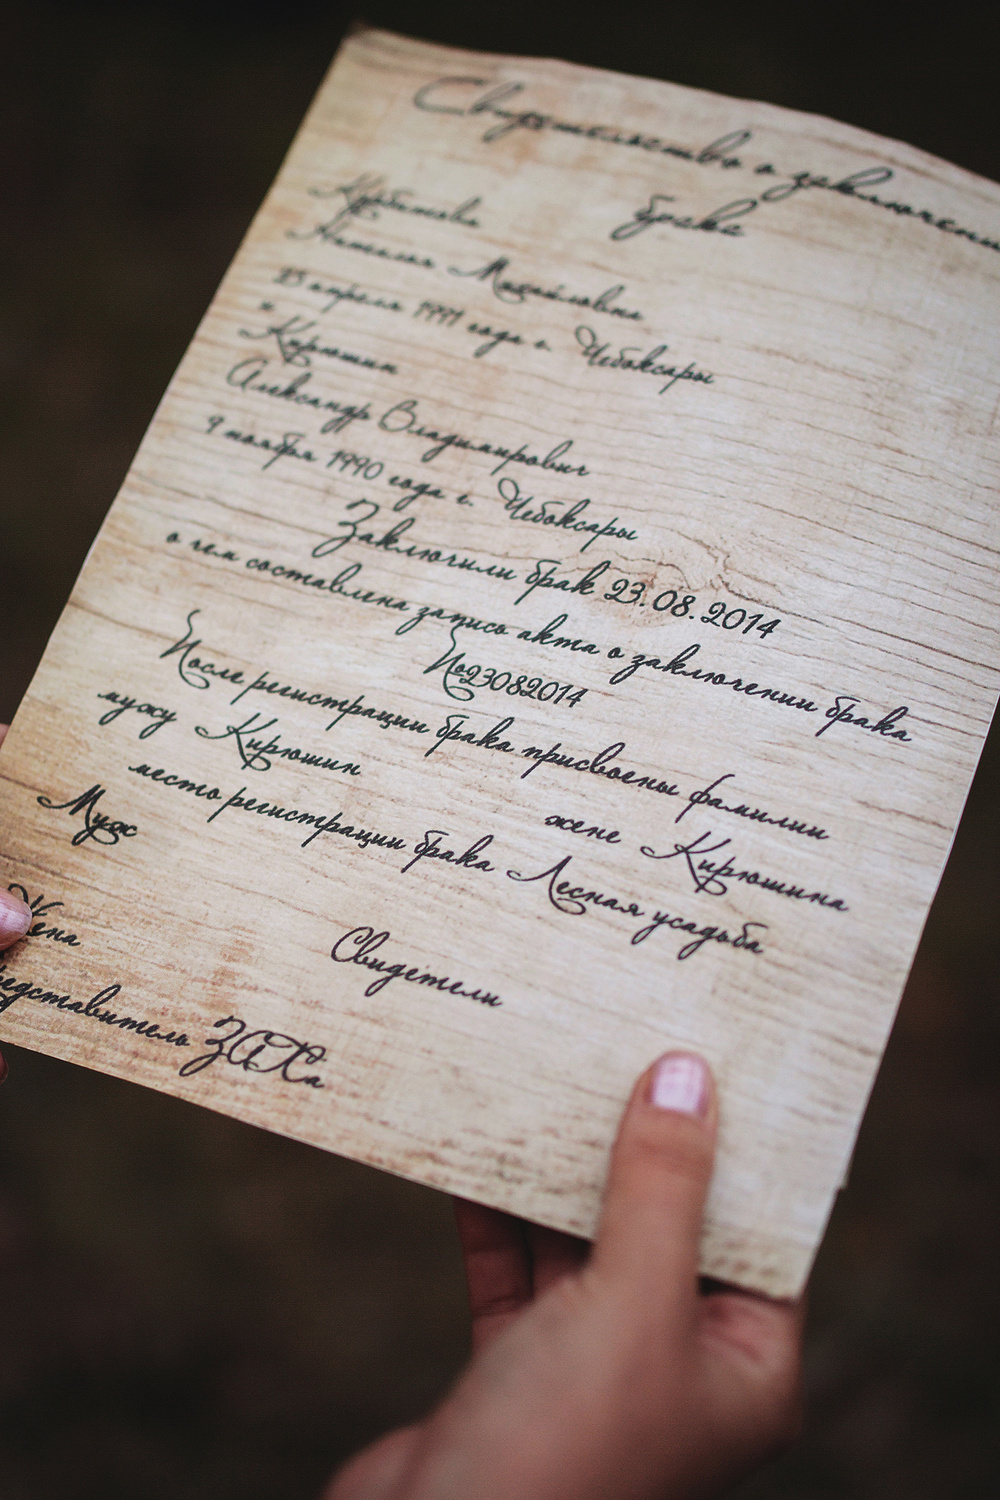 Свидетельство о заключении
брака
Курбатова
Наталья Михайловна
23 апреля 1991 года г. Чебоксары
и
Кирюшин
Александр Владимирович
9 ноября 1990 года г. Чебоксары
Заключили брак 23.08.2014
о чем составлена запись акта о заключении брака
№23082014
После регистрации брака присвоены фамилии
мужу Кирюшин жене Кирюшина
место регистрации брака Лесная усадьба
Муж
Жена
Свидетели
редставитель ЗАГСа